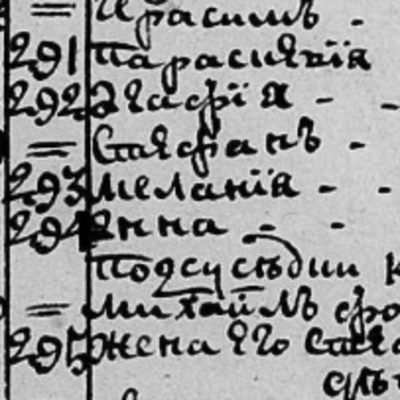 = Герасимъ -
291 Параскевія
292 Агафія - -
= Стефанъ -
293 Меланія - -
294 Анна - -
Подсусѣдки
= Михаилъ
295 Жена его